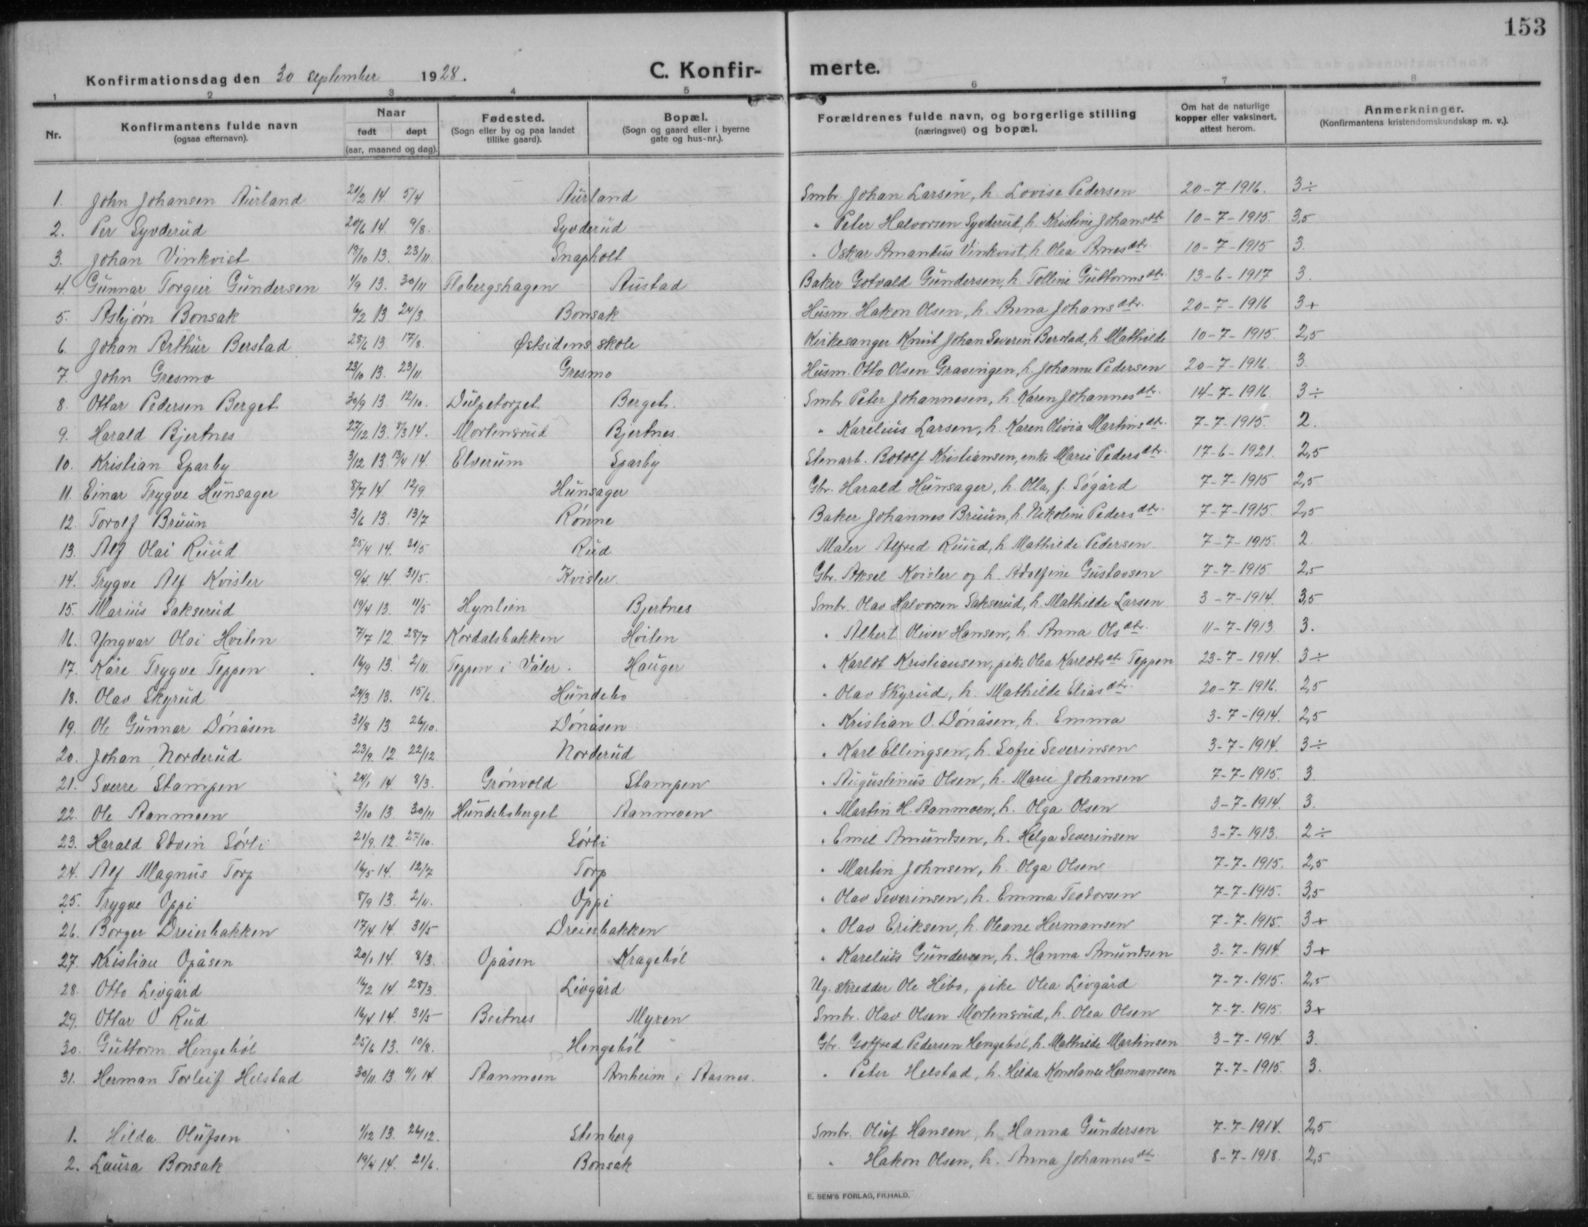 153
Konfirmationsdag den 30 september 1928. C. Konfirmerte.
1 2 3 4 5 6 7 8
Nr. Konfirmantens fulde navn (ogsaa efternavn). Naar født døpt (aar, maaned og dag). Fødested. (Sogn eller by og paa landet tillike gaard). Bopæl. (Sogn og gaard eller i byerne gate og hus-nr.). Forældrenes fulde navn, og borgerlige stilling (næringsvei) og bopæl. Om hat de naturlige kopper eller vaksinert, attest herom. Anmerkninger. (Konfirmantens kristendomskundskap m. v.).
1. John Johansen Aurland 21/2 14 5/4 Aurland Smbr. Johan Larsen, h. Lovise Pedersen 20-7-1916. 3÷
2. Per Syverud 20/6 14 9/8. Syverud " Peter Halvorsen Syverud, h. Kristine Johansdtr 10-7-1915 3,5
3. Johan Vinkvist 19/10 13. 23/11 Snapholt " Oskar Amandus Vinkvist, h. Olea Arnesdtr. 10-7-1915 3.
4. Gunnar Torgeir Gundersen 1/9 13. 30/11 Flobergshagen Austad Baker Gotvald Gundersen, h. Tolline Guttormsdtr. 13-6-1917 3.
5. Asbjørn Bonsak 6/2 13 24/3 Bonsak Husm. Hakon Olsen, h. Anna Johansdtr. 20-7-1916 3+
6. Johan Arthur Berstad 28/6 13 17/8 Østsidens skole Kirkesanger Knut Johan Severin Berstad, h. Mathilde 10-7-1915. 2,5
7. John Gresmo 23/10 13. 23/11 Gresmo Husm. Otto Olsen Gravingen, h. Johanne Pedersen 20-7-1916. 3.
8. Ottar Pedersen Berget 30/9 13 12/10. Dulpetorpet Berget. Smbr. Peter Johannesen, h. Karen Johannesdtr. 14-7-1916 3÷
9. Harald Bjertnes 27/12 13. 8/3 14. Mortensrud Bjertnes. " Karelius Larsen, h. Karen Olivia Martinsdtr. 7-7-1915. 2.
10. Kristian Sparby 3/12 13 13/4 14. Elverum Sparby Stenarb. Botolf Kristiansen, enke Marie Pedersdtr. 17-6-1921. 2,5
11 Einar Trygve Hunsager 8/7 14 12/9 Hunsager Gbr. Harald Hunsager, h. Olla, f. Søgård 7-7-1915 2,5
12. Torolf Bruun 3/6 13. 13/7 Rønne Baker Johannes Bruun, h. Nikoline Pedersdtr. 7-7-1915 2,5
13. Alf Olai Ruud 25/4 14. 21/5 Rud Maler Alfred Ruud, h. Mathilde Pedersen 7-7-1915. 2
14. Trygve Alf Kvisler 9/4. 14 31/5. Kvisler Gbr. Aksel Kvisler og h. Adolfine Gustavsen 7-7-1915 2,5
15. Marius Sakserud 19/4 13. 11/5 Hynlien Bjertnes Smbr. Olav Halvorsen Sakserud, h. Mathilde Larsen 3-7-1914. 3,5
16. Yngvar Olai Hvilen 7/7 12 28/7 Nordalsbakken Hvilen " Albert Oliver Hansen, h. Anna Olsdtr. 11-7-1913 3.
17. Kåre Trygve Teppen 16/9 13 2/11. Teppen i Våler. Hauger " Karlot Kristiansen, pike Olea Karlotsdt. Teppen 23-7-1914. 3÷
18. Olav Skyrud 24/3 13. 15/6. Hundebo " Olav Skyrud, h. Mathilde Eliasdtr. 20-7-1916. 2,5
19. Ole Gunnar Dönåsen 31/8 13 26/10. Dönåsen " Kristian O. Dönåsen, h. Emma 3-7-1914. 2,5
20. Johan Norderud 23/9 12 22/12 Norderud " Karl Ellingsen, h. Sofie Severinsen 3-7-1914. 3÷
21. Sverre Stampen 24/1 14 8/3. Grønvold Stampen " Augustinus Olsen, h. Marie Johansen 7-7-1915. 3
22. Ole Aanmoen 3/10 13. 30/11 Hundebsberget Aanmoen " Martin H. Aanmoen, h. Olga Olsen 3-7-1914. 3.
23. Harald Edvin Sörli 21/9. 12. 27/10. Sörli " Emil Amundsen, h. Helga Severinsen 3-7-1913. 2÷
24. Alf Magnus Torp 16/5 14. 12/7 Torp " Martin Johnsen, h. Olga Olsen 7-7-1915. 2,5
25. Trygve Oppi 8/9 13. 2/11. Oppi " Olav Severinsen, h. Emma Teodorsen 7-7-1915. 3,5
26. Borger Dreierbakken 17/4 14 31/5 Dreierbakken " Olav Eriksen, h. Oleane Hermansen 7-7-1915. 3+
27. Kristian Opåsen 20/1 14 8/3. Opåsen Kragebøl " Karelius Gundersen, h. Hanna Amundsen 3-7-1914 3+
28. Otto Livgård 16/2 14 28/3. Livgård Ug. skredder Ole Hebo, pike Olea Livgård 7-7-1915. 2,5
29. Ottar O Rud 16/4 14. 31/5 Beitnes Myren Smbr. Olav Olsen Mortensrud, h. Olea Olsen 7-7-1915. 3+
30. Guttorm Hengebøl 25/6 13. 10/8. Hengebøl Gbr. Gotfred Pedersen Hengebøl, h. Mathilde Martinsen 3-7-1914. 3.
31. Herman Torleif Helstad 30/11 13. 11/1 14 Aanmoen Anheim i Aasnes. " Peter Helstad, h. Hilda Konstanse Hermansen 7-7-1915. 3.
1. Hilda Olufsen 1/12 13. 26/12. Stenberg Smbr. Oluf Hansen, h. Hanna Gundersen 7-7-1914. 2,5
2. Laura Bonsak 19/4 14. 21/6. Bonsak " Hakon Olsen, h. Anna Johannesdtr 8-7-1918 2,5
E. SEM'S FORLAG, FR.HALD.